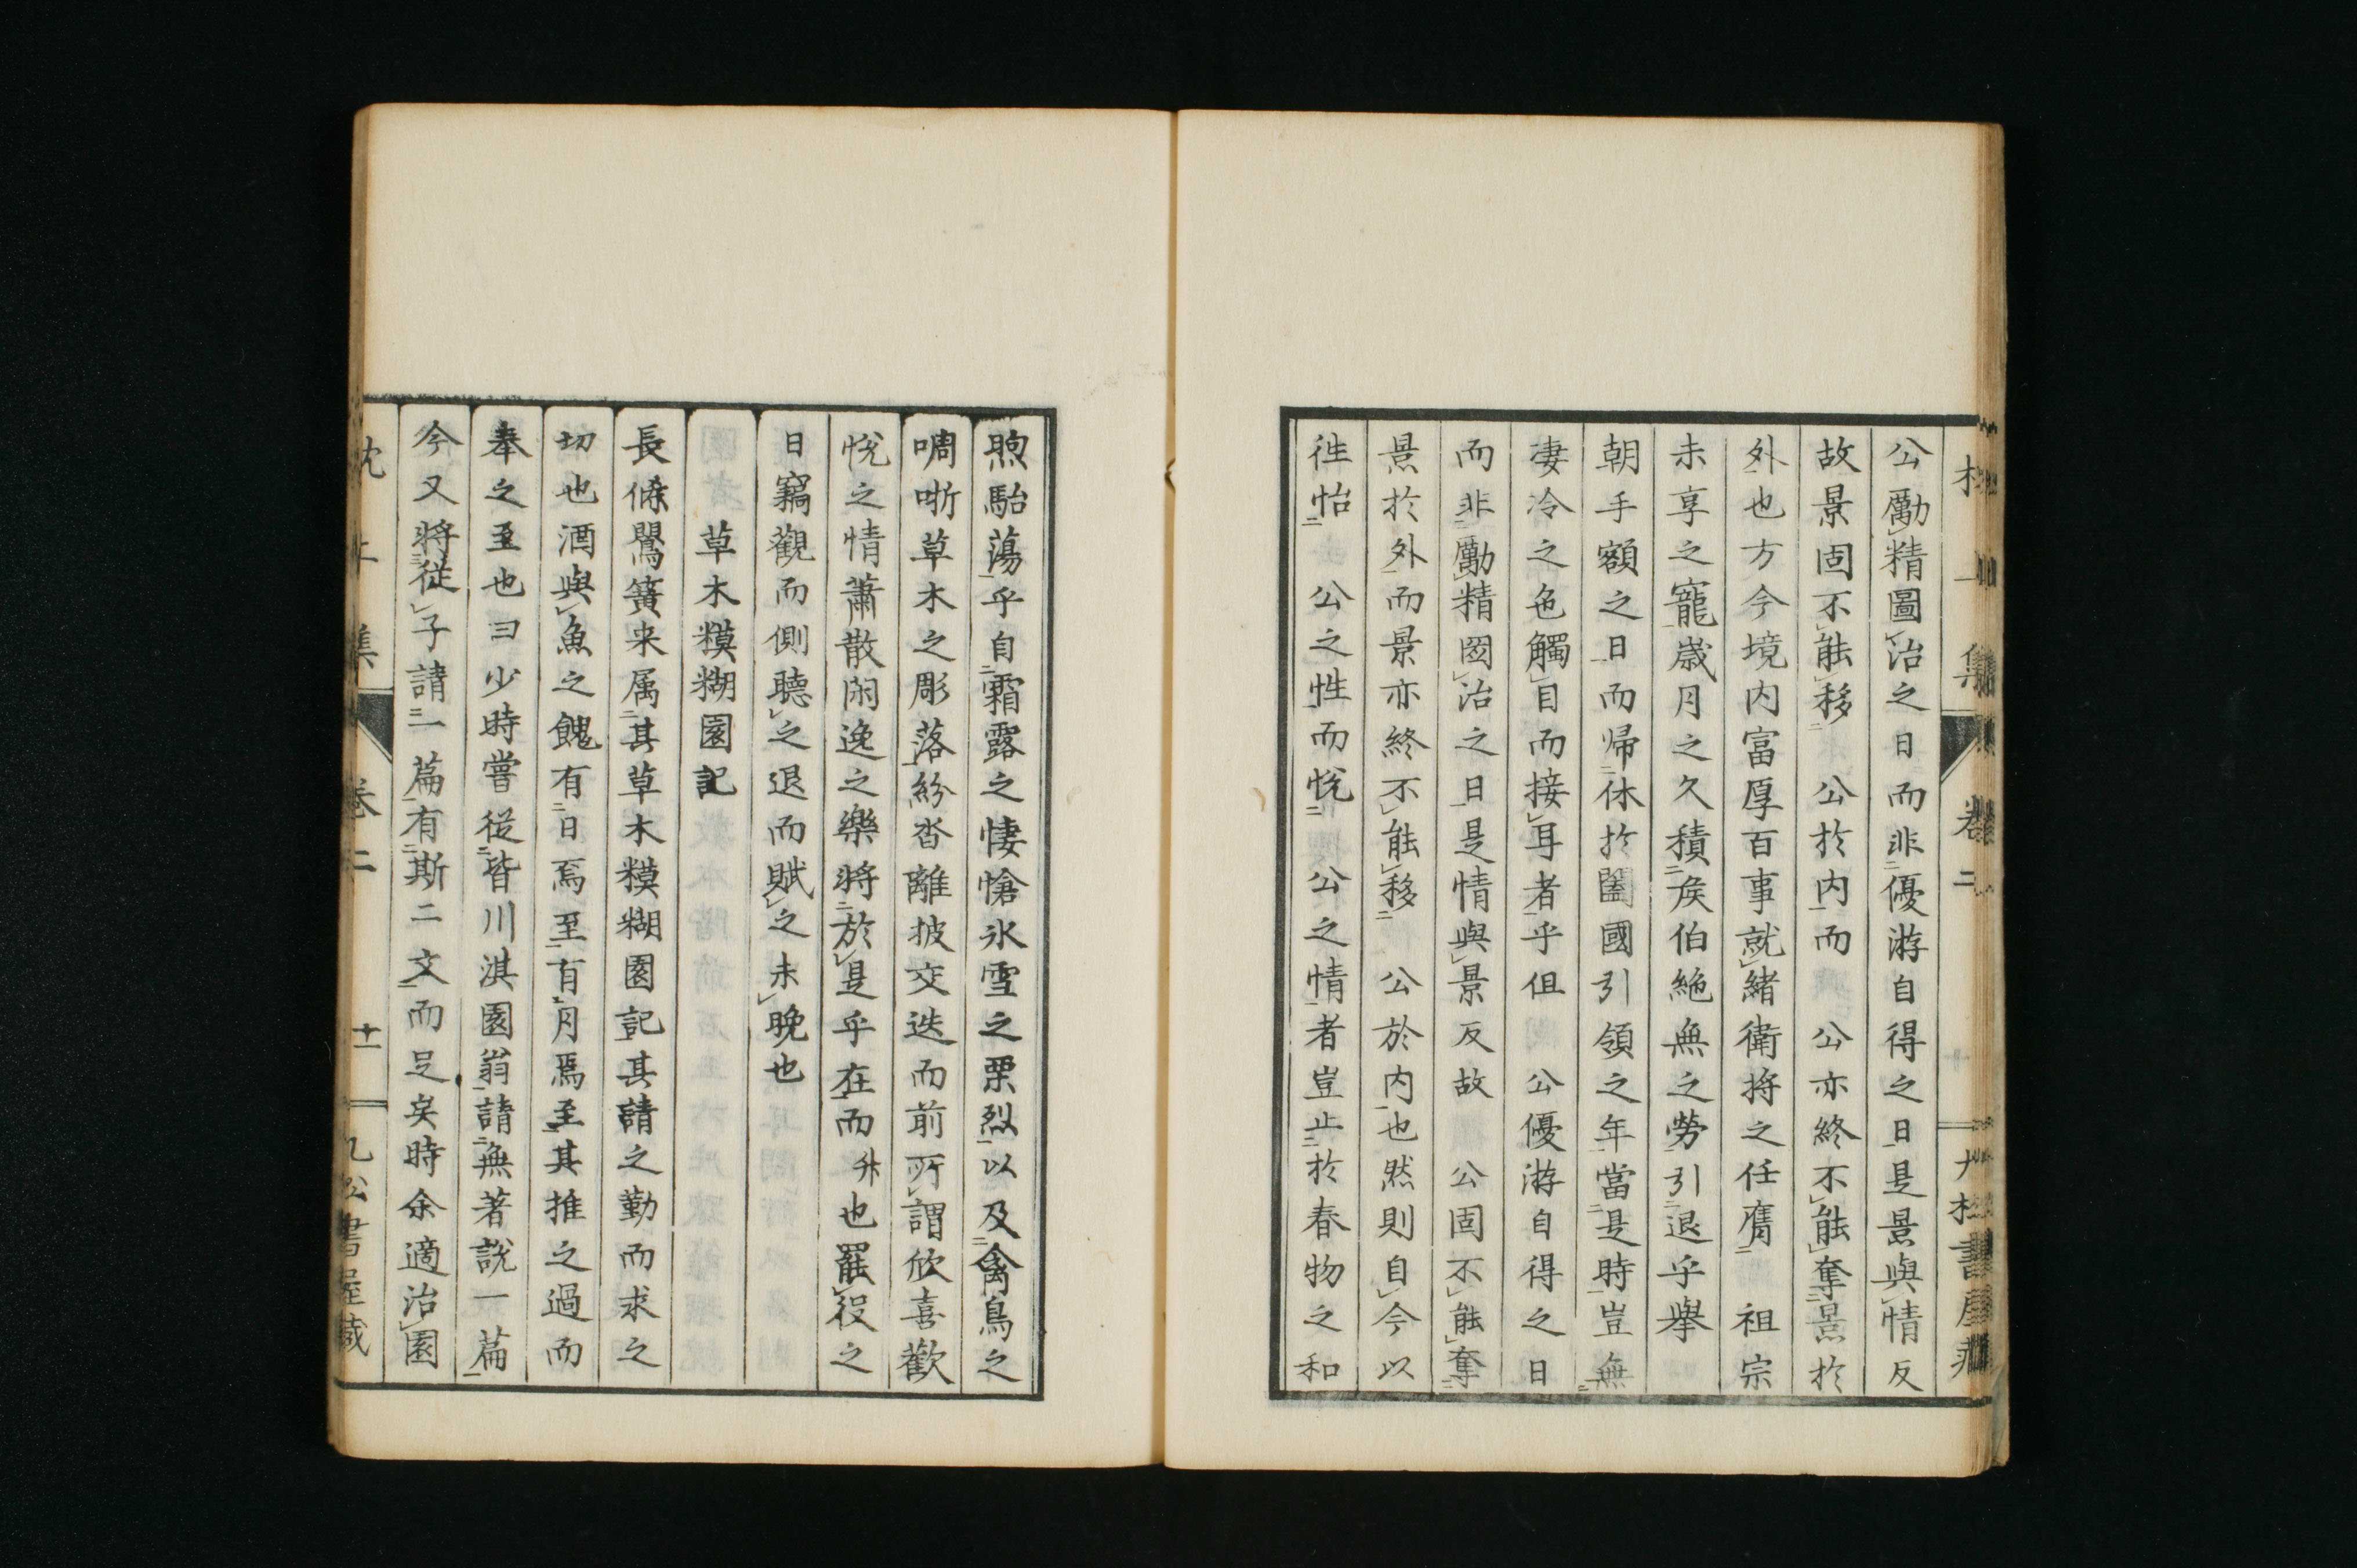 公勵精圖治之日而非優游自得之日是景與情反
故景固不能移 公於内而 公亦終不能奪景於
外也方今境内富厚百事就緒衛將之任膺 祖宗
未享之寵歳月之久積矦伯絶無之勞引退乎舉
朝手額之日而帰休於闔國引領之年當是時豈無
凄冷之色觸目而接耳者乎但 公優游自得之日
而非勵精圖治之日是情與景反故 公固不能奪
景於外而景亦終不能移 公於内也然則自今以
徃怡 公之性而悅 公之情者豈止於春物之和
煦駘蕩乎自霜露之悽愴氷雪之栗烈以及禽鳥之
啁哳草木之彫落紛沓離披交迭而前所謂欣喜歡
悅之情蕭散閑逸之樂將於是乎在而卅也罷役之
日竊觀而側聽之退而賦之未晩也
草木糢糊園記
長條鷽簧来属其草木糢糊園記其請之勤而求之
切也酒與魚之餽有日焉至有月焉至其推之過而
奉之至也曰少時嘗從皆川淇園翁請無著說一篇
今又將從子請一篇有斯二文而足矣時余適治園
集 卷二 十一
集 卷二